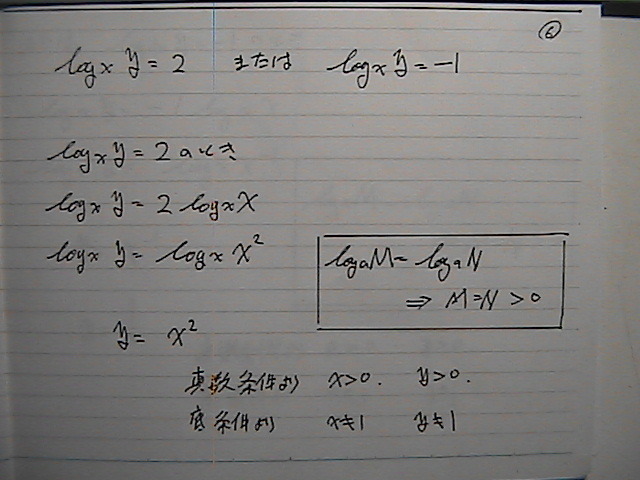 ⑥
log_x y = 2 または log_x y = -1
log_x y = 2 のとき
log_x y = 2 log_x x
log_x y = log_x x²
log_a M = log_a N
⇒ M = N > 0
y = x²
真数条件より x > 0. y > 0.
底条件より x ≠ 1 y ≠ 1